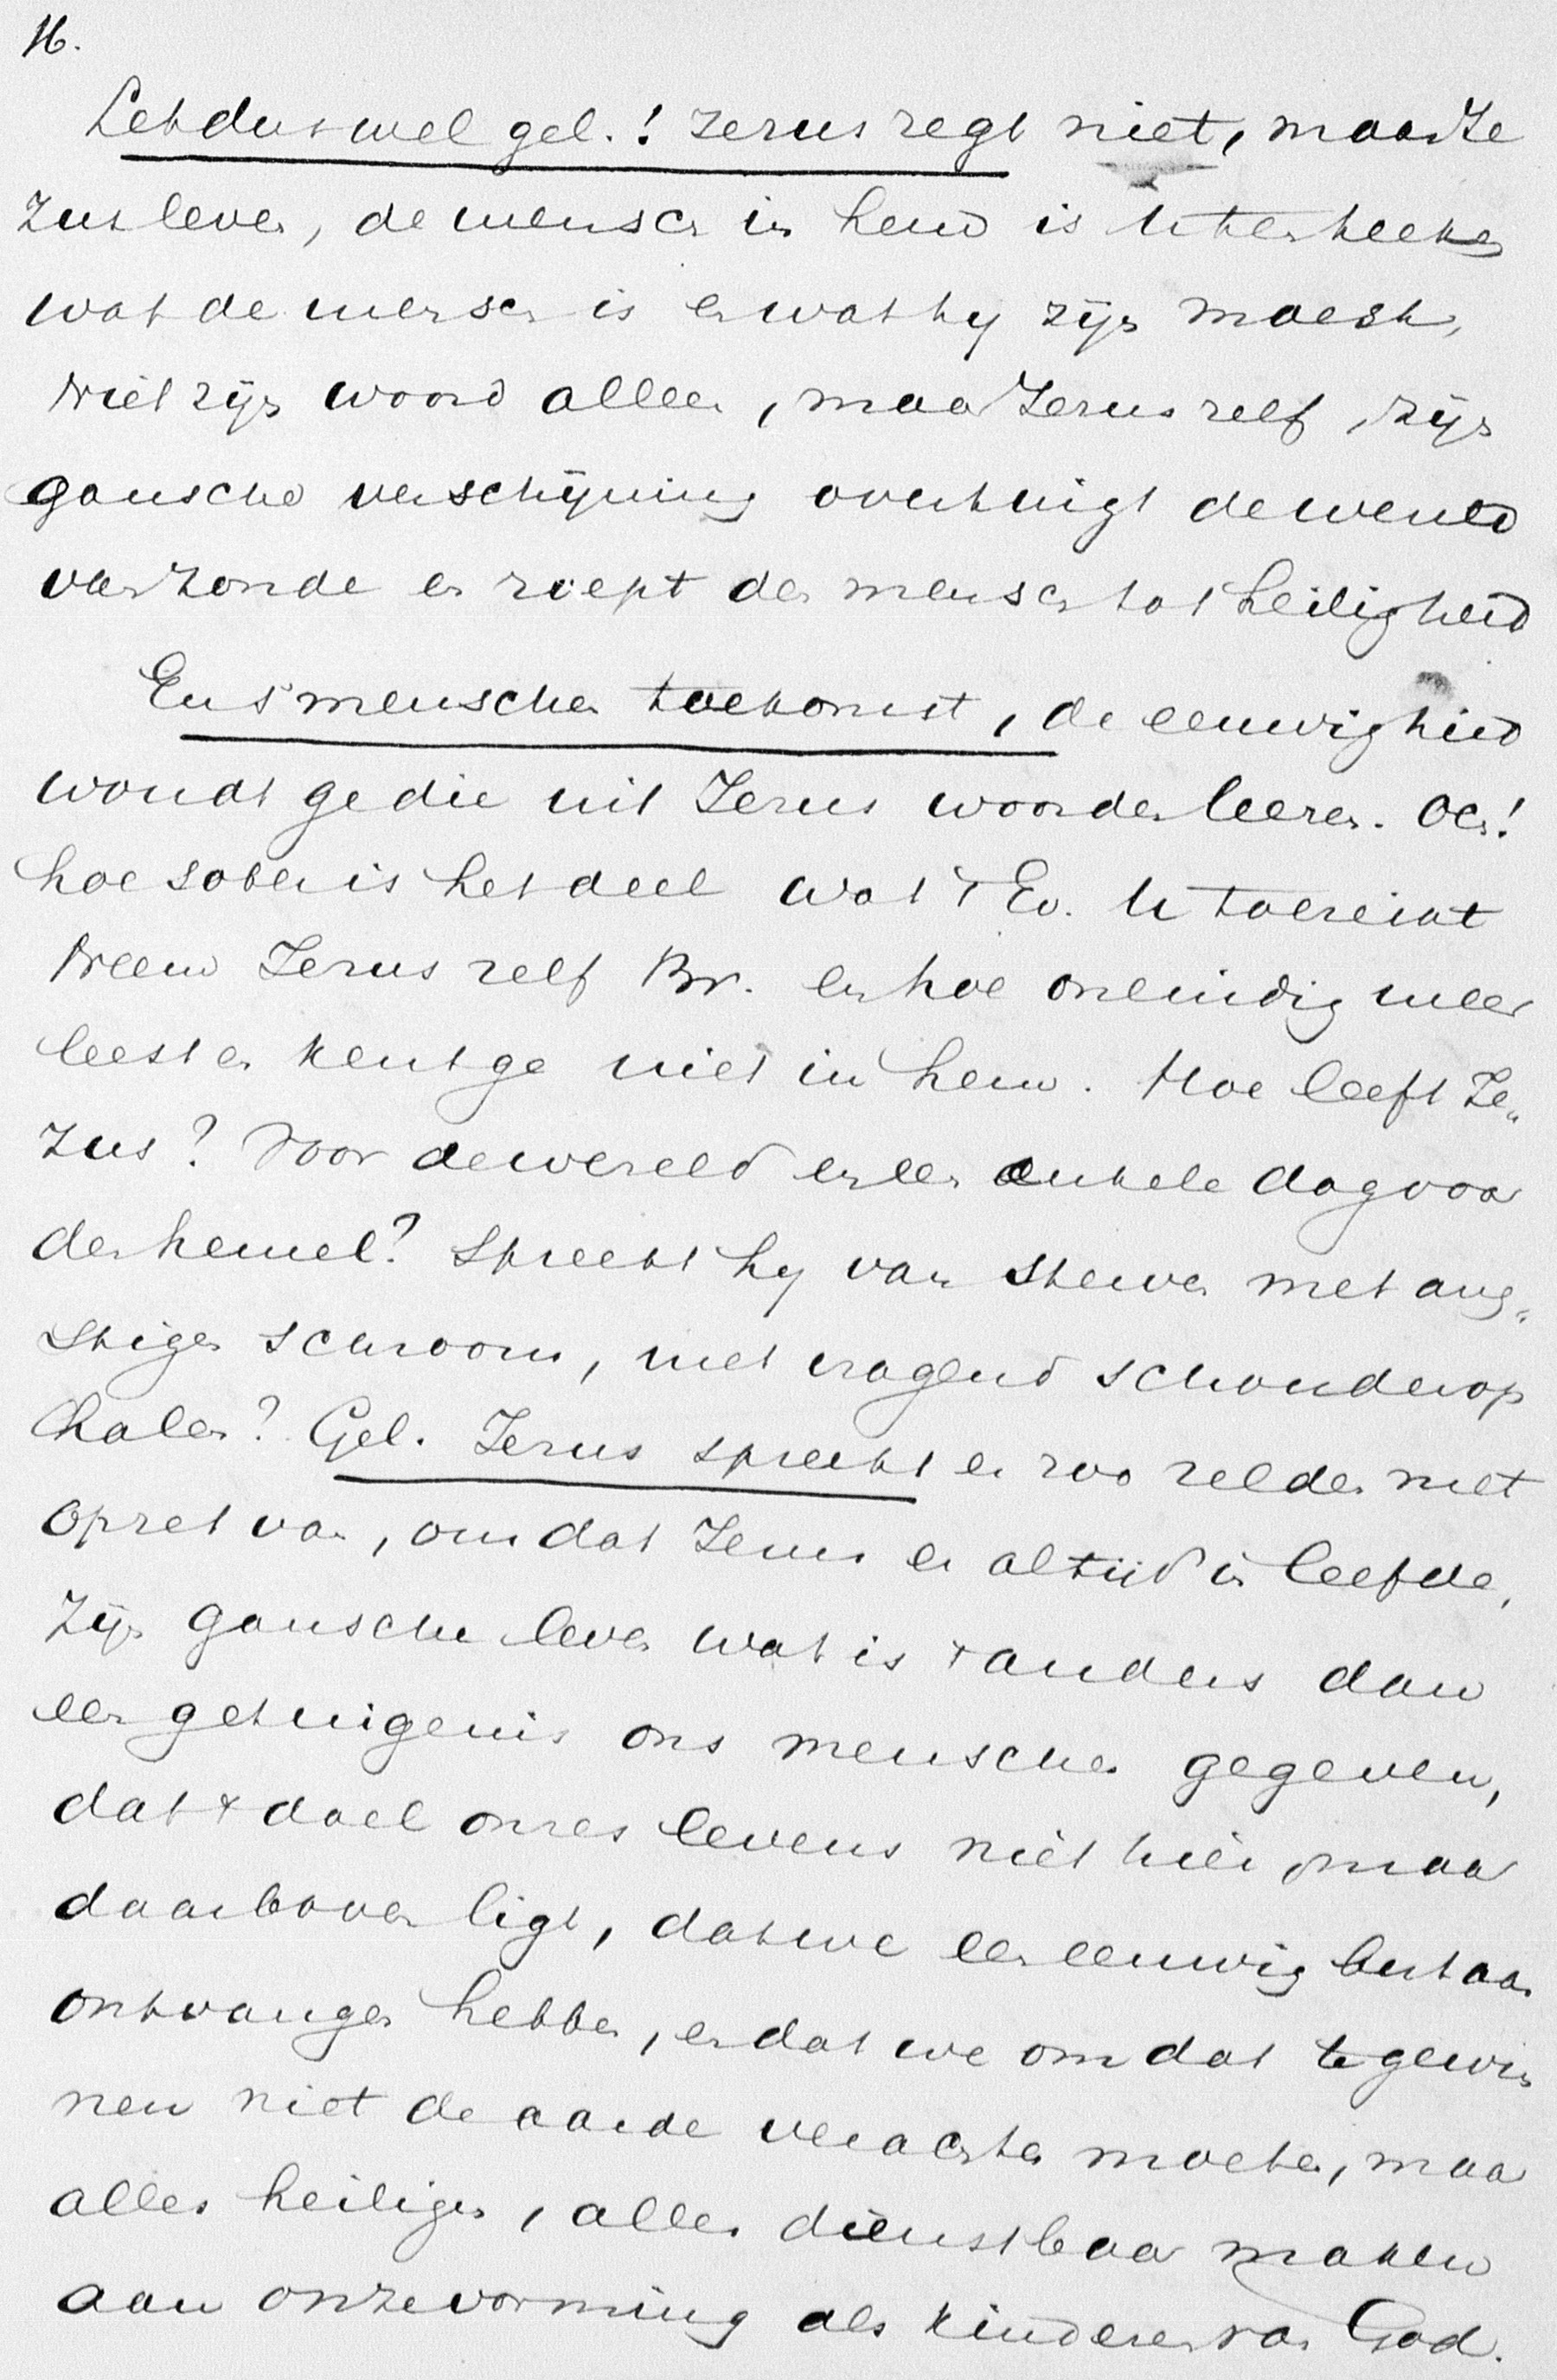 16.
Let dus wel gel.! Jezus zegt niet, maar Je
zus leven, de mensch in hem is U ten teeken
wat de mensch is en wat hy zijn moest,
Niet zijn woord alleen, maar Jezus zelf, zijn
gansche verschijning overtuigt de wereld
van zonde en roept den mensch tot heiligheid
En 's menschen toekomst, de eeuwigheid
woudt ge die uit Jezus woorden leeren. Och!
hoe sober is het deel wat 't Ev. U toereikt
Neem Jezus zelf Br. en hoe oneindig meer
leest en kent ge niet in hem. Hoe leeft Je„
zus? Voor de wereld en een enkele dag voor
den hemel? Spreekt hy van sterven met ang„
stigen schroom, met vragend schouderop
halen? Gel. Jezus spreekt er zoo zelden met
opzet van, omdat Jezus er altijd in leefde,
Zijn gansche leven wat is 't anders dan
een getuigenis ons menschen gegeven,
dat 't doel onzes levens niet hier, maar
daarboven ligt, dat we een eeuwig bestaan
ontvangen hebben, en dat we om dat te gewin
nen niet de aarde verachten moeten, maar
alles heiligen, alles dienstbaar maken
aan onze vorming als kinderen van God.